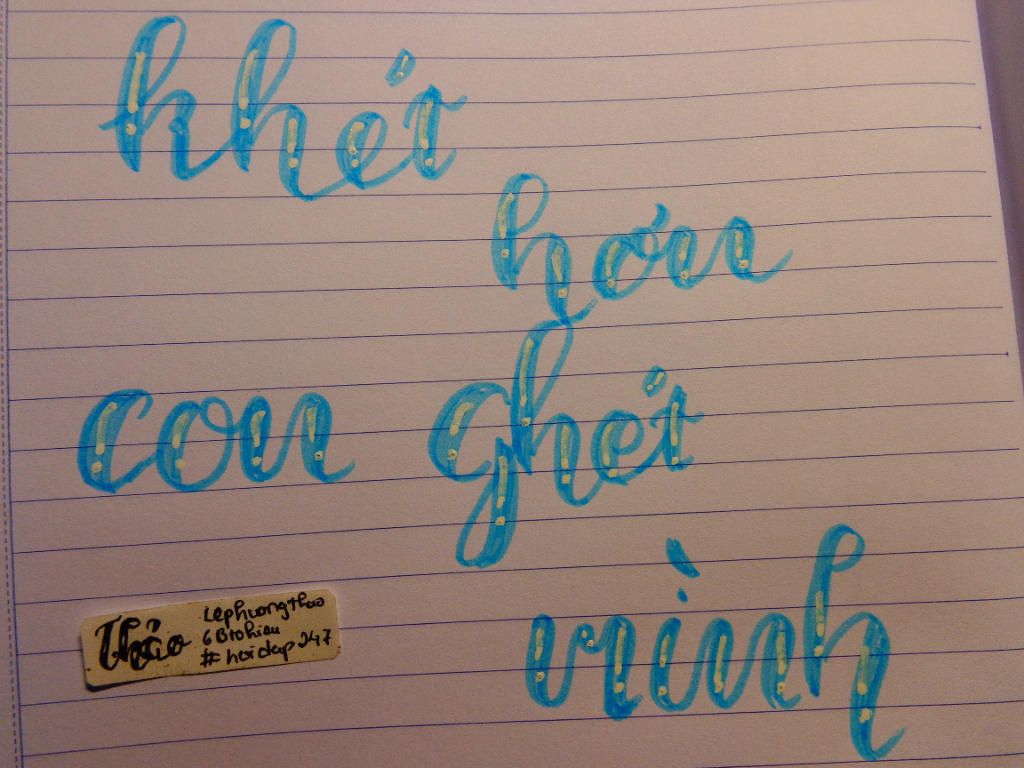 khét
hơn
con ghét
mình
Thảo
Lephuongthao
6B tohieu
#hoidap247